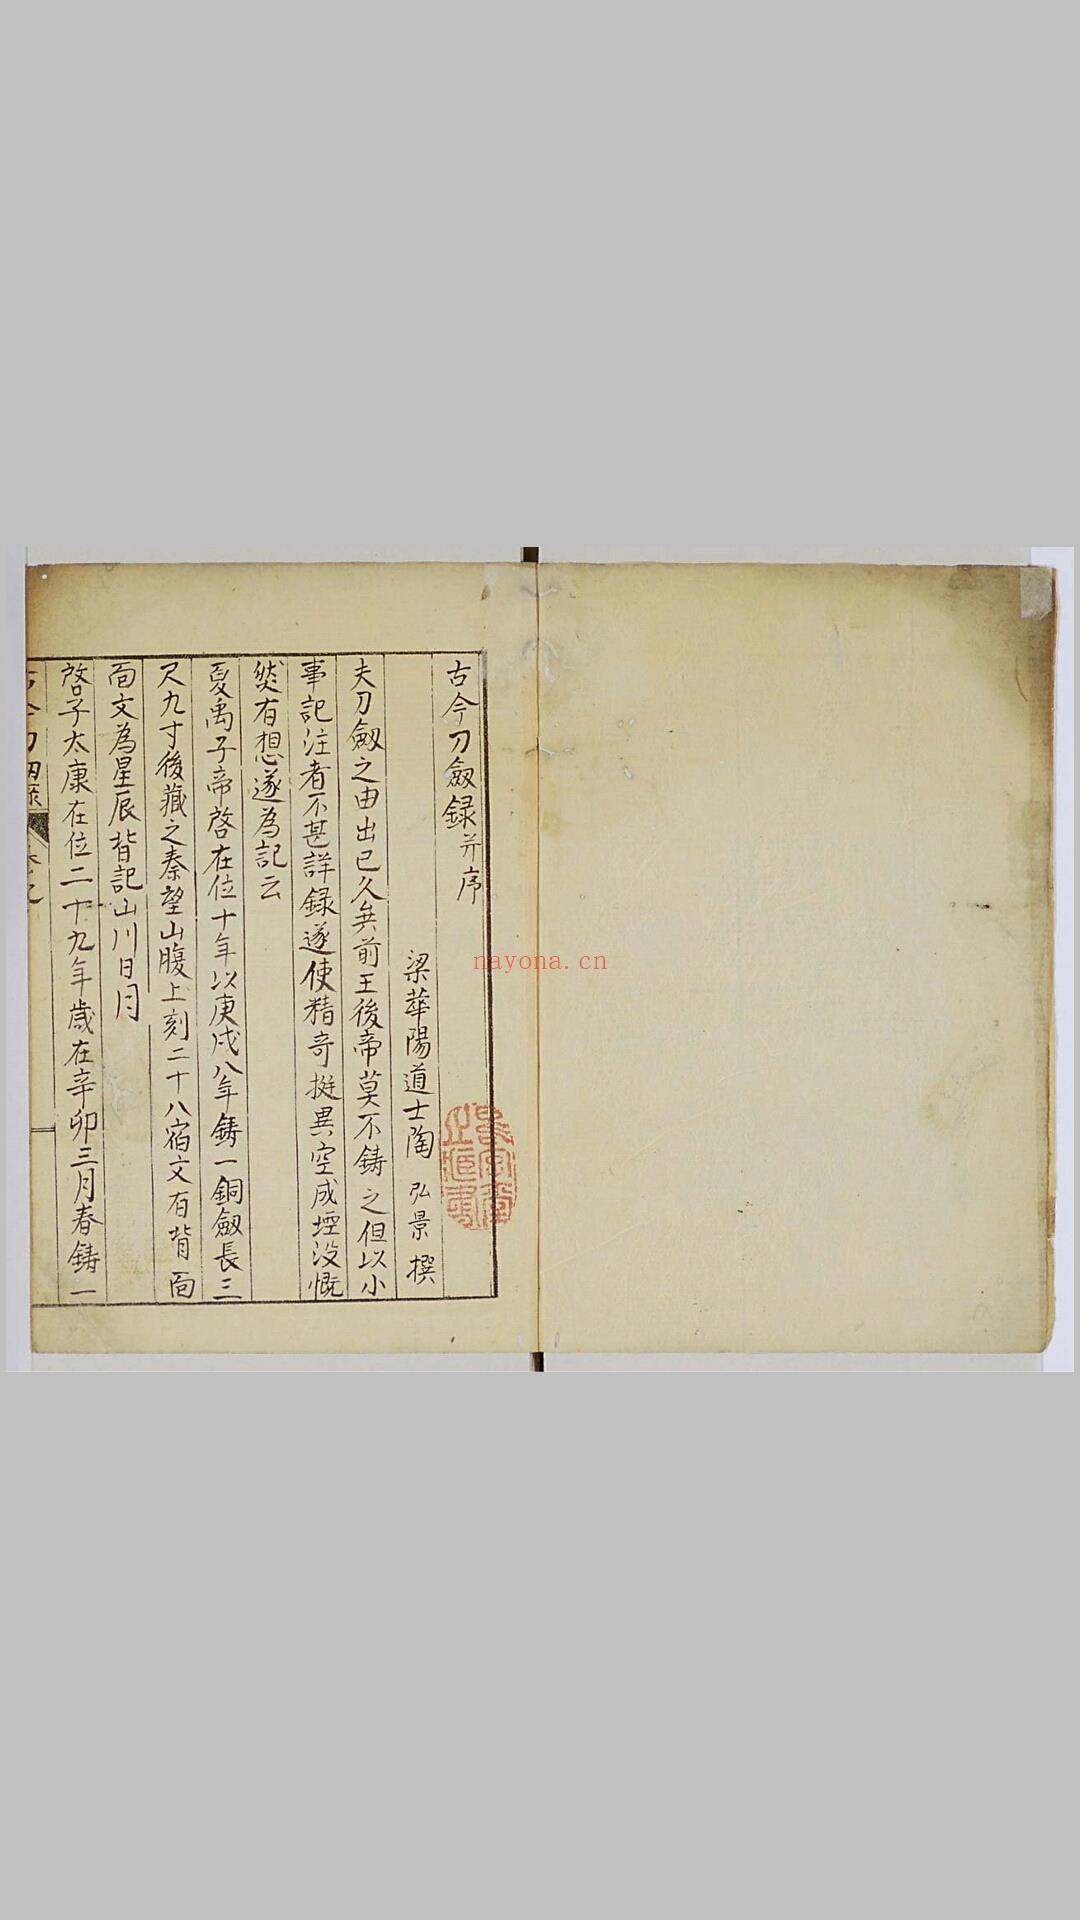 古今刀劔録并序
梁華陽道士陶弘景撰
夫刀劔之由出已久矣前王後帝莫不鑄之但以小
事記注者不甚詳録遂使精奇挺異空成堙没慨
然有想遂為記云
夏禹子帝啓在位十年以庚戌八年鑄一銅劔長三
尺九寸後藏之秦望山腹上刻二十八宿文有背面
面文為星辰背記山川日月
啓子太康在位二十九年歲在辛卯三月春鑄一
nayona.cn